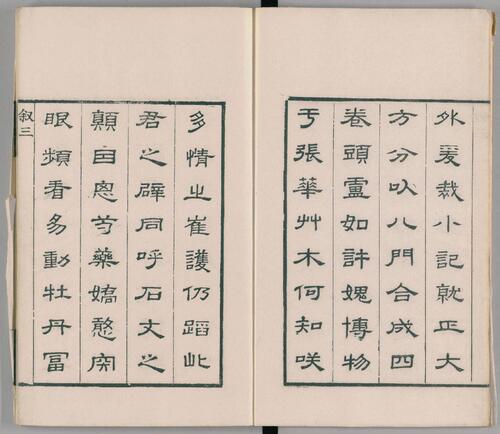 外爰裁小記就正大
方分以八門合成四
卷頭盧如許媿博物
于張華艸木何知咲
多情之崔護仍蹈此
君之癖同呼石丈之
顛自恖芍藥嬌憨閑
眼頻看易動牡丹冨
叙三